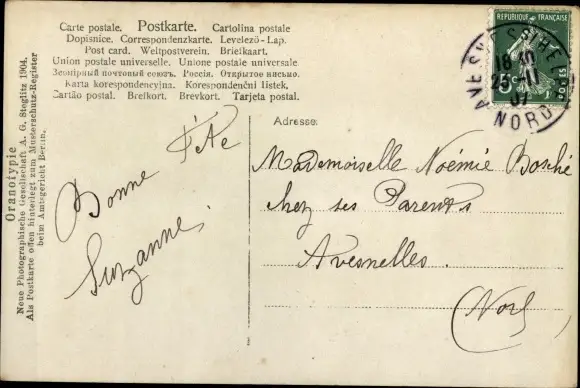 Carte postale. Postkarte. Cartolina postale
Dopisnice. Correspondenzkarte. Levelezö-Lap.
Post card. Weltpostverein. Briefkaart.
Union postale universelle. Unione postale universale
Всемірный почтовый союзъ. Россія. Открытое письмо.
Karta korespondencyjna. Korespondenční listek.
Cartão postal. Brefkort. Brevkort. Tarjeta postal.
Oranotypie
Neue Photographische Gesellschaft A. G. Steglitz 1904.
Als Postkarte offen hinterlegt zum Musterschutz-Register
beim Amtsgericht Berlin.
REPUBLIQUE FRANÇAISE
5c
POSTES
18 30
25-11
07
NORD
Adresse:
Bonne Fête
Suzanne
Mademoiselle Noémie Bosché
chez ses Parents
Avesnelles.
(Nord)